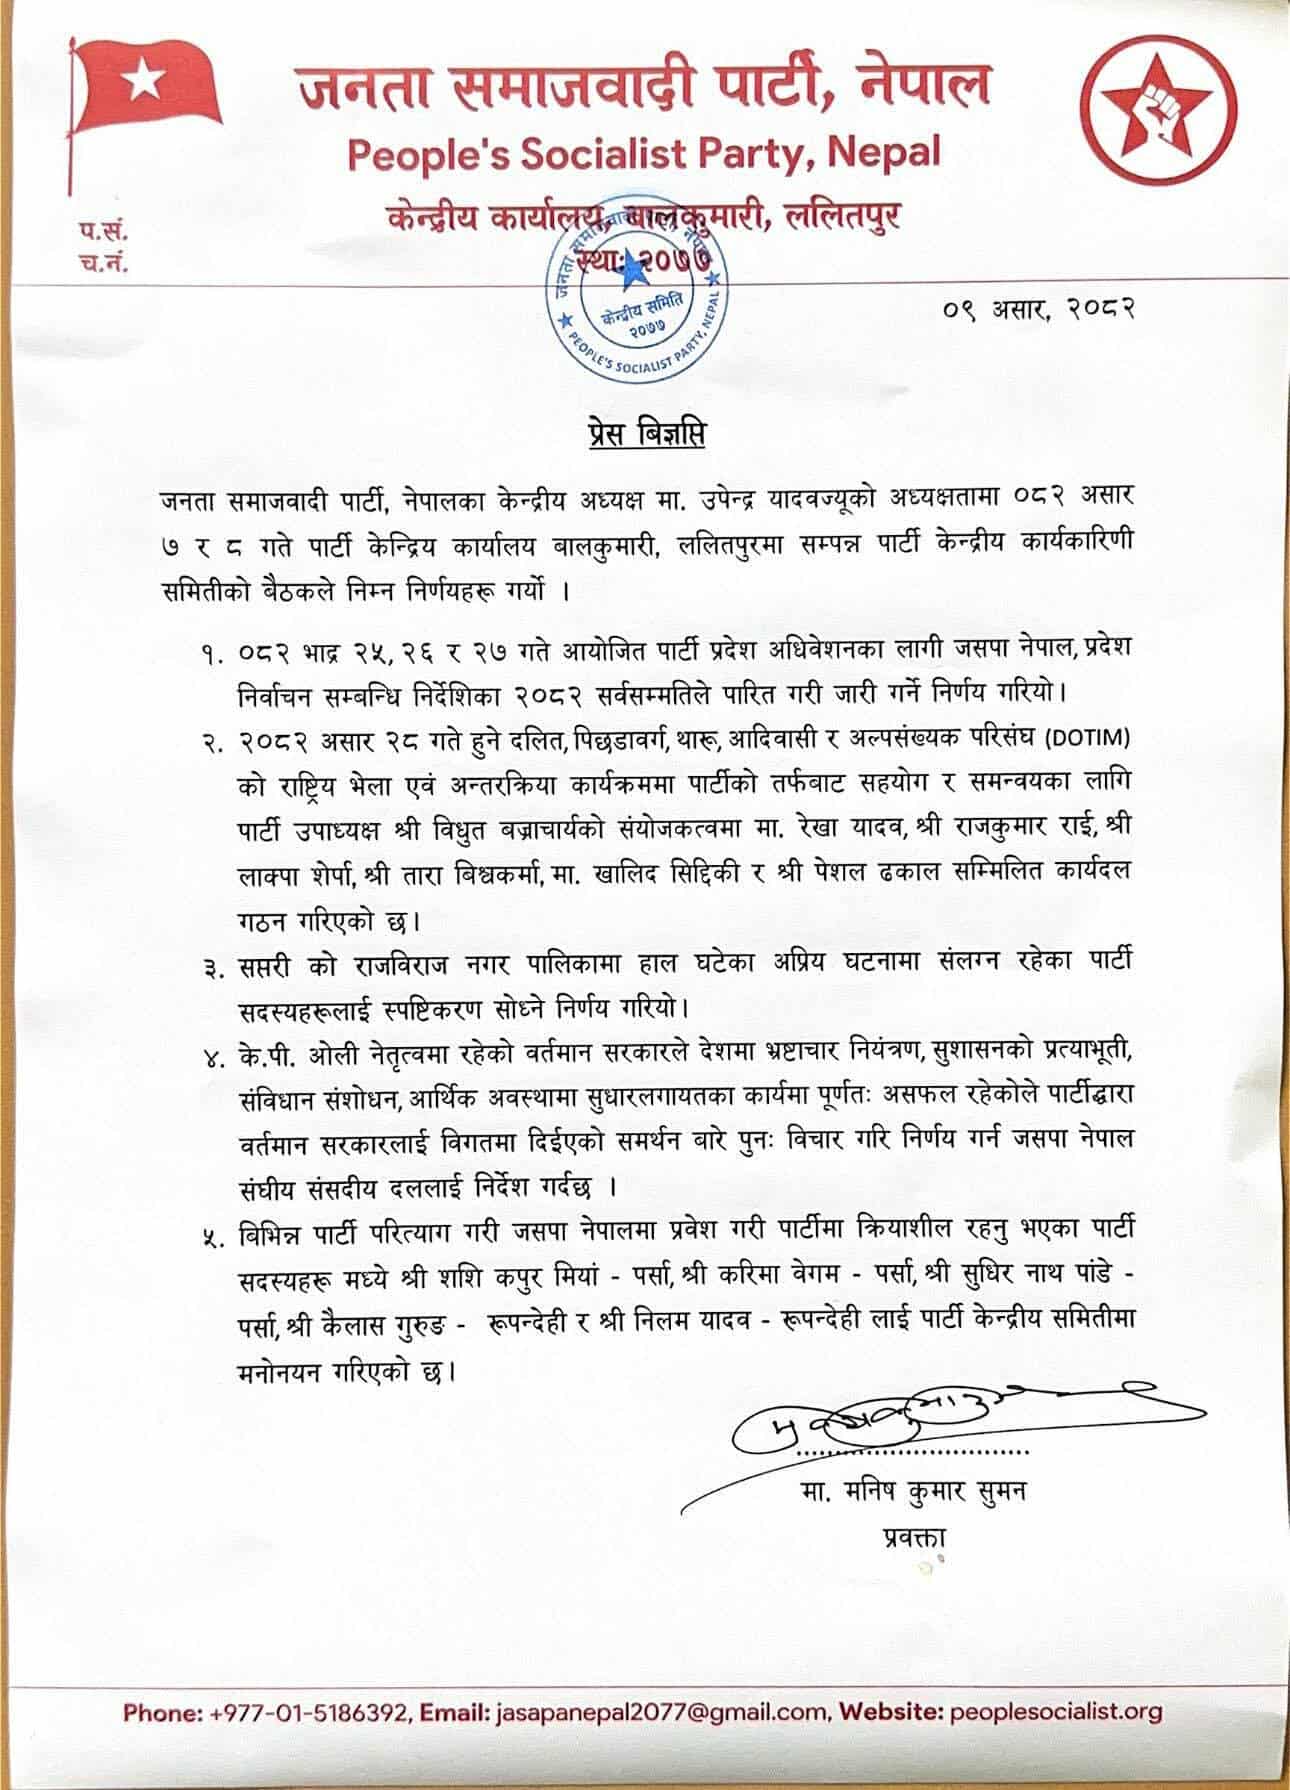 जनता समाजवादी पार्टी, नेपाल
People's Socialist Party, Nepal
केन्द्रीय कार्यालय, बालकुमारी, ललितपुर
स्था: २०७७
प.सं.
च.नं.
जनता समाजवादी पार्टी, नेपाल
केन्द्रीय समिति
२०७७
PEOPLE'S SOCIALIST PARTY, NEPAL
०९ असार, २०८२
प्रेस बिज्ञप्ति
जनता समाजवादी पार्टी, नेपालका केन्द्रीय अध्यक्ष मा. उपेन्द्र यादवज्यूको अध्यक्षतामा ०८२ असार
७ र ८ गते पार्टी केन्द्रिय कार्यालय बालकुमारी, ललितपुरमा सम्पन्न पार्टी केन्द्रीय कार्यकारिणी
समितीको बैठकले निम्न निर्णयहरू गर्यो ।
१. ०८२ भाद्र २५, २६ र २७ गते आयोजित पार्टी प्रदेश अधिवेशनका लागी जसपा नेपाल, प्रदेश
निर्वाचन सम्बन्धि निर्देशिका २०८२ सर्वसम्मतिले पारित गरी जारी गर्ने निर्णय गरियो।
२. २०८२ असार २८ गते हुने दलित, पिछडावर्ग, थारू, आदिवासी र अल्पसंख्यक परिसंघ (DOTIM)
को राष्ट्रिय भेला एवं अन्तरक्रिया कार्यक्रममा पार्टीको तर्फबाट सहयोग र समन्वयका लागि
पार्टी उपाध्यक्ष श्री विधुत बज्राचार्यको संयोजकत्वमा मा. रेखा यादव, श्री राजकुमार राई, श्री
लाक्पा शेर्पा, श्री तारा बिश्वकर्मा, मा. खालिद सिद्दिकी र श्री पेशल ढकाल सम्मिलित कार्यदल
गठन गरिएको छ।
३. सप्तरी को राजविराज नगर पालिकामा हाल घटेका अप्रिय घटनामा संलग्न रहेका पार्टी
सदस्यहरूलाई स्पष्टिकरण सोध्ने निर्णय गरियो।
४. के.पी. ओली नेतृत्वमा रहेको वर्तमान सरकारले देशमा भ्रष्टाचार नियंत्रण, सुशासनको प्रत्याभूती,
संविधान संशोधन, आर्थिक अवस्थामा सुधारलगायतका कार्यमा पूर्णतः असफल रहेकोले पार्टीद्वारा
वर्तमान सरकारलाई विगतमा दिईएको समर्थन बारे पुनः विचार गरि निर्णय गर्न जसपा नेपाल
संघीय संसदीय दललाई निर्देश गर्दछ ।
५. बिभिन्न पार्टी परित्याग गरी जसपा नेपालमा प्रवेश गरी पार्टीमा क्रियाशील रहनु भएका पार्टी
सदस्यहरू मध्ये श्री शशि कपुर मियां - पर्सा, श्री करिमा वेगम - पर्सा, श्री सुधिर नाथ पांडे -
पर्सा, श्री कैलास गुरुङ - रूपन्देही र श्री निलम यादव - रूपन्देही लाई पार्टी केन्द्रीय समितीमा
मनोनयन गरिएको छ।
मा. मनिष कुमार सुमन
प्रवक्ता
Phone: +977-01-5186392, Email: jasapanepal2077@gmail.com, Website: peoplesocialist.org